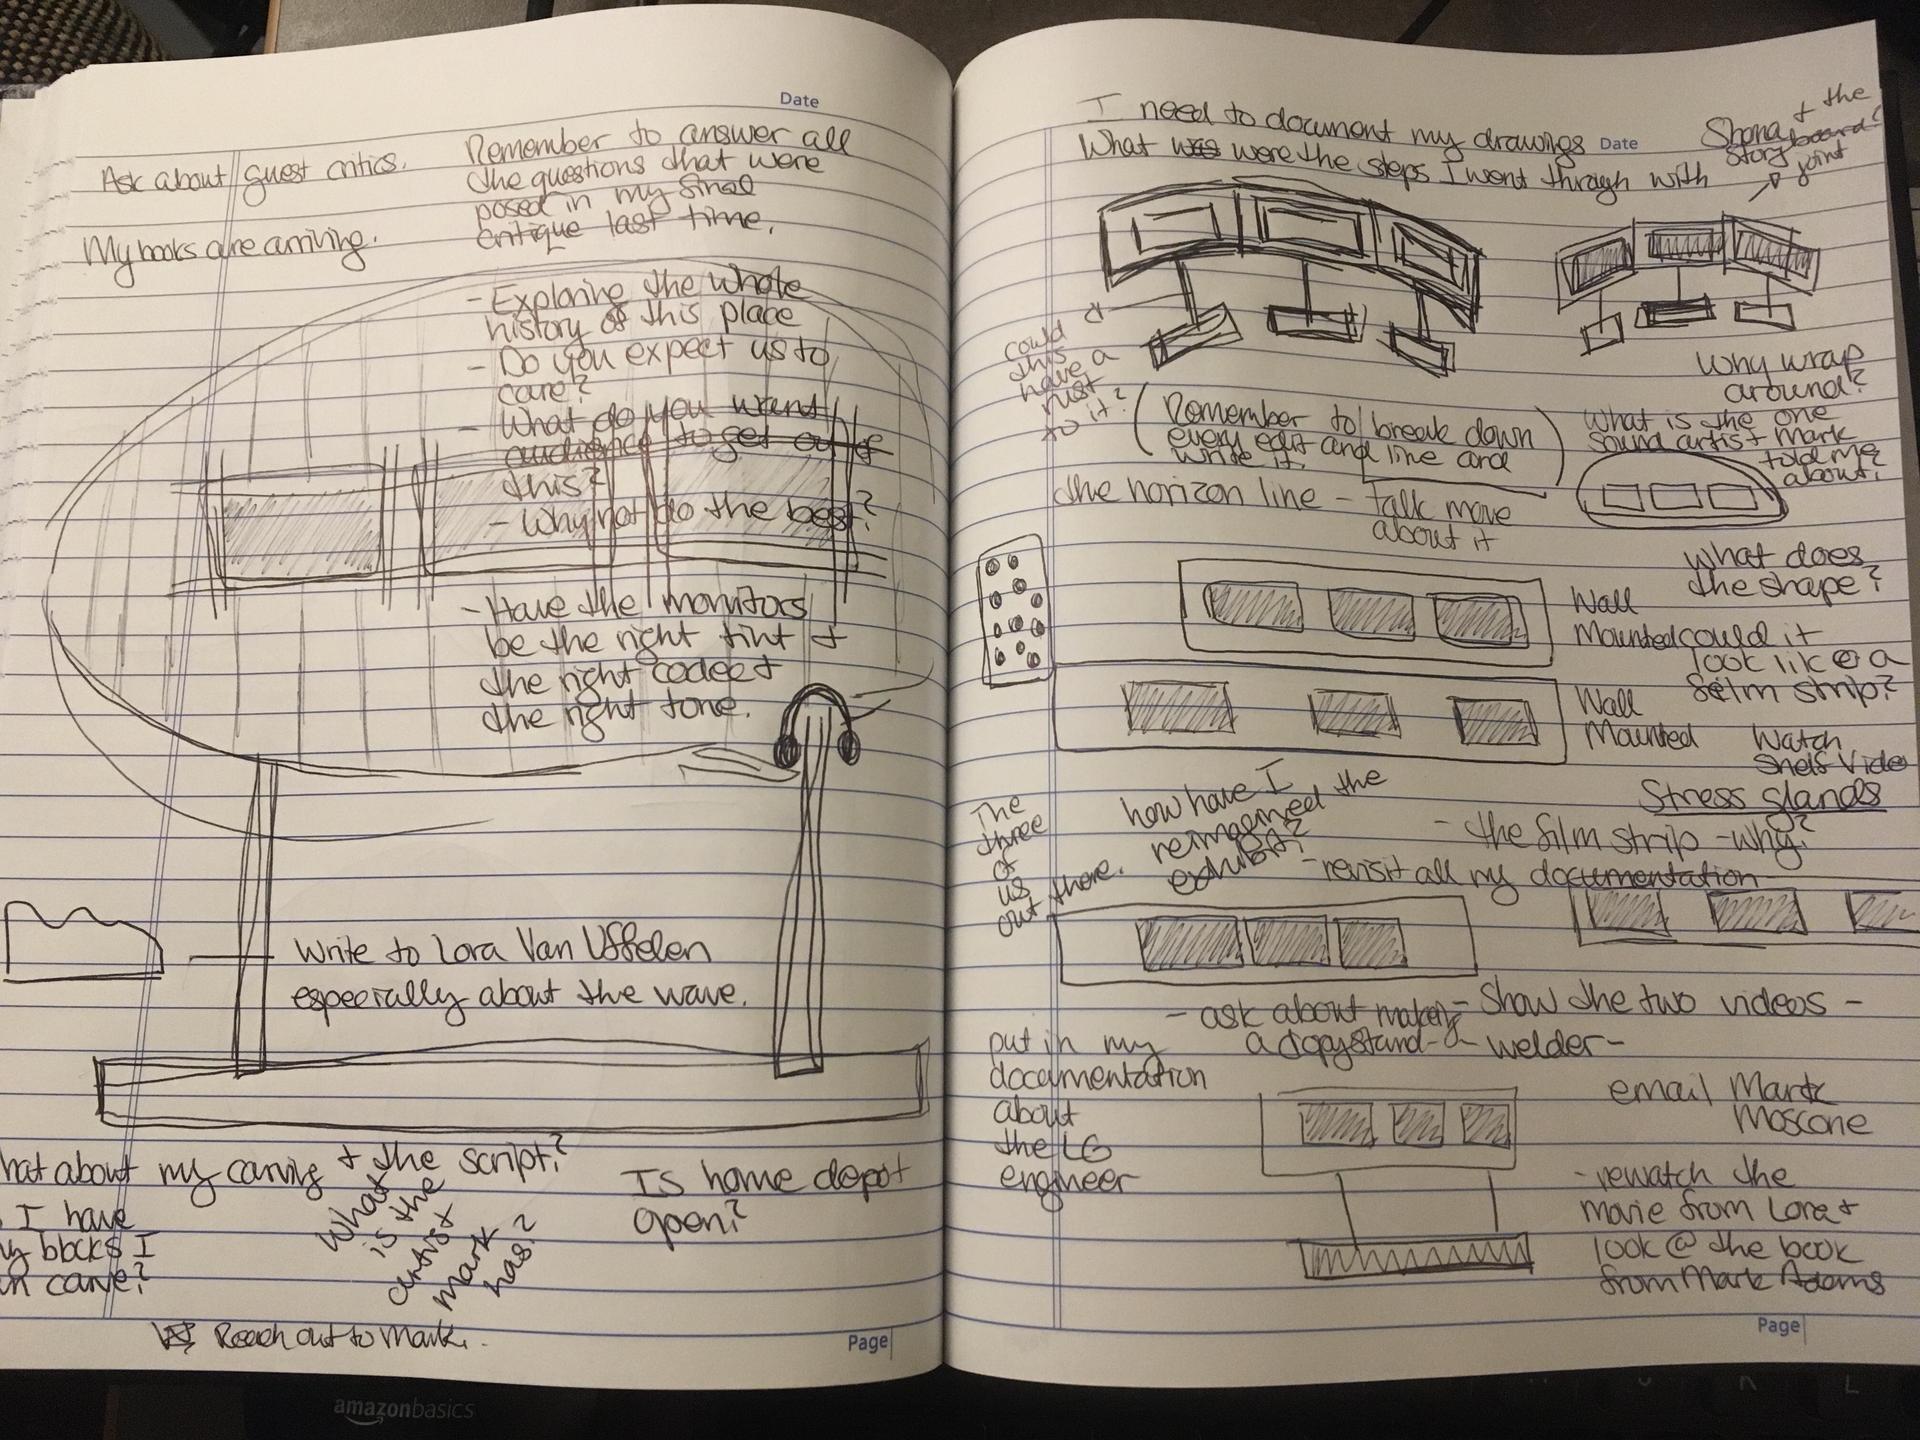 Date
Ask about guest critics.
Remember to answer all
the questions that were
posed in my final
critique last time.
My books are arriving.
- Exploring the whole
history of this place
- Do you expect us to
care?
- What do you want
audience to get out of
this?
- Why not do the best?
- Have the monitors
be the right tint +
the right codec +
the right tone.
Write to Lora Van Uffelen
especially about the wave.
hat about my carving + the script?
I have
blocks I
carve?
What
is the
artist
mark
has?
Is home depot
open?
Reach out to Mark.
Page
amazonbasics
I need to document my drawings
Date
What was were the steps I went through with
Shona + the
story board?
joint
could
this
have a
rust
to it?
Why wrap
around?
(Remember to break down
every edit and line and
write it.)
What is the one
sound artist Mark
told me
about?
the horizon line - talk more
about it
What does
the shape?
Wall
Mounted
could it
look like @ a
film strip?
Wall
Mounted
Watch
Shelf Video
Stress glands
The
three
of
us
out there.
how have I
reimagined the
exhibit?
- the film strip - why?
- revisit all my documentation
- ask about making
a copystand -
- Show the two videos -
a welder -
put in my
documentation
about
the LG
engineer
email Mark
Moscone
- rewatch the
movie from Lora +
look @ the book
from Mark Adams
Page